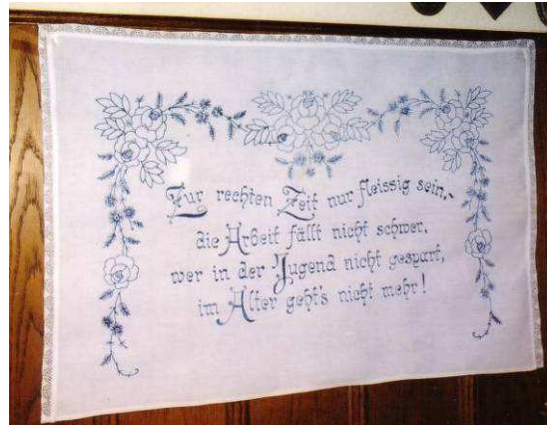 Zur rechten Zeit nur fleissig sein,
die Arbeit fällt nicht schwer,
wer in der Jugend nicht gespart,
im Alter geht's nicht mehr!